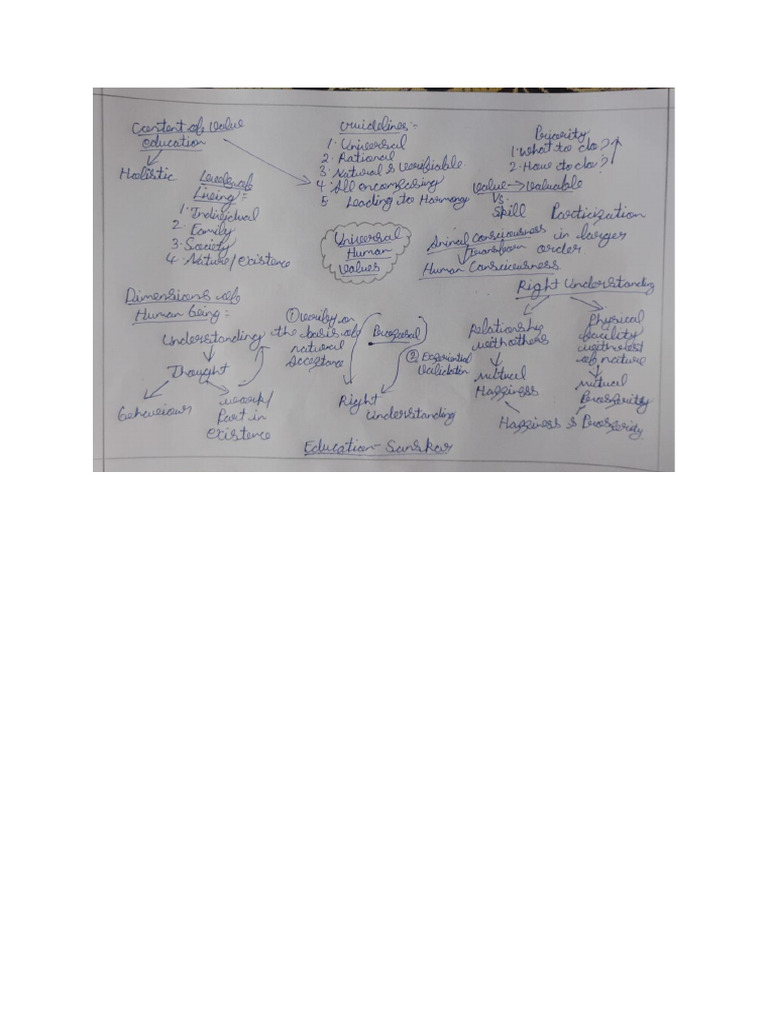 Content of Value
education
Holistic
Levels of
Living:
1. Individual
2. Family
3. Society
4. Nature/existence
Guidelines:-
1. Universal
2. Rational
3. Natural & verifiable
4. All encompassing
5 Leading to Harmony
Priority
1. What to do?
2. How to do?
Value → Valuable
Vs.
Skill
Participation
in larger
order
Universal
Human
Values
Animal Consciousness
Transform
Human Consciousness
Dimensions of
Human being:
Understanding
Thought
Behaviour
work/
Part in
existence
① Verify on
the basis of
natural
acceptance
Proposal
② Experiential
Validation
Right
Understanding
Right Understanding
Relationship
with others
mutual
Happiness
Physical
facility
with rest
of nature
mutual
Prosperity
Happiness & Prosperity
Education-Sanskar